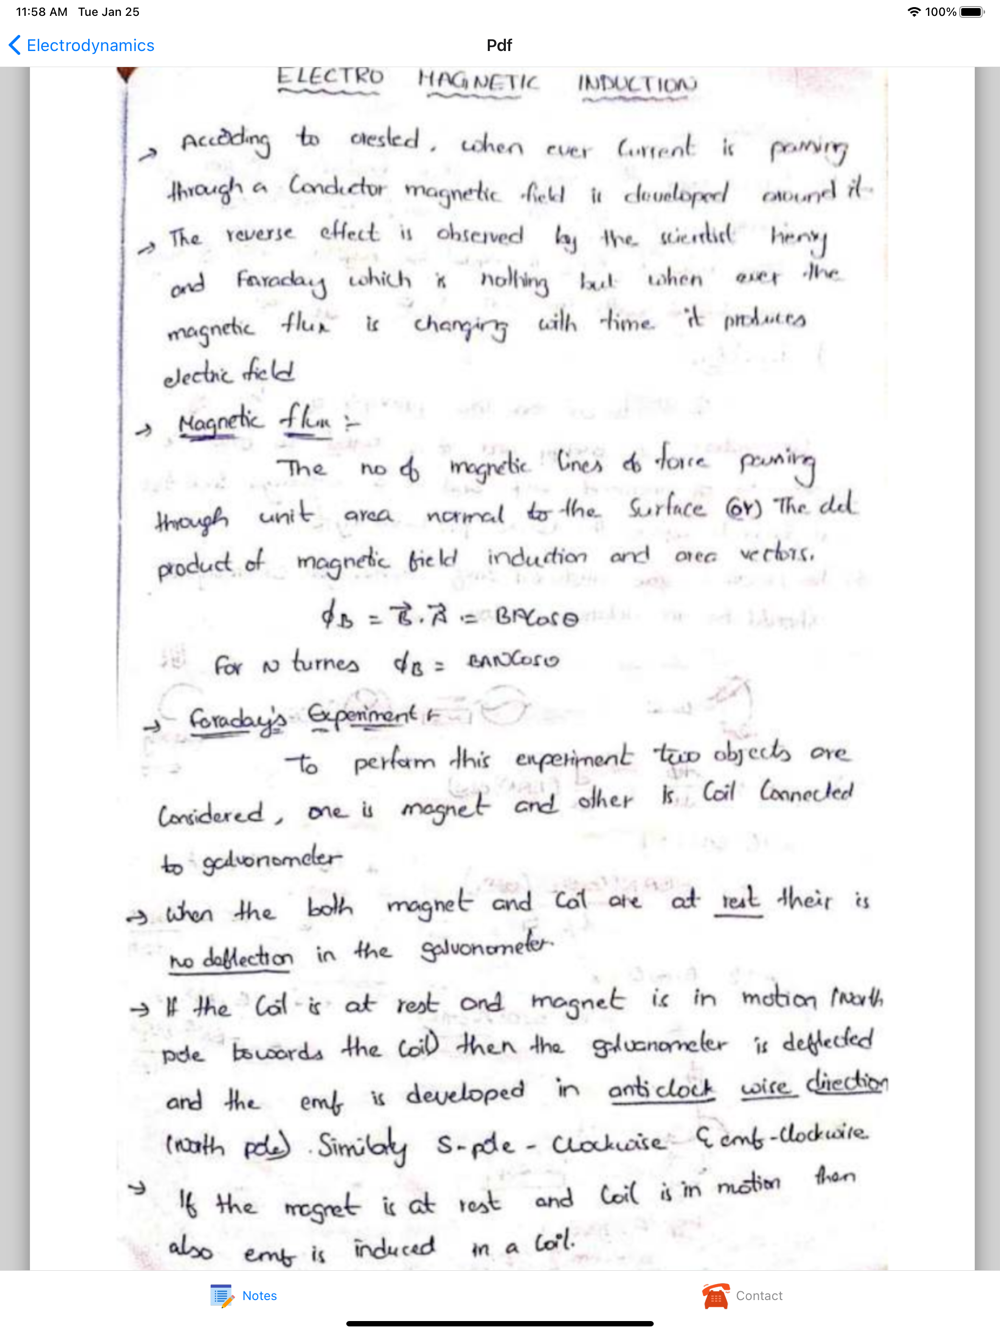 11:58 AM Tue Jan 25
100%
Electrodynamics
Pdf
ELECTRO MAGNETIC INDUCTION
→ According to orested, when ever Current is passing
through a Conductor magnetic field is developed around it
→ The reverse effect is observed by the scientist henry
and Faraday which is nothing but when ever the
magnetic flux is changing with time it produces
electric field
→ Magnetic flux :-
The no of magnetic lines of force passing
through unit area normal to the Surface (or) The dot
product of magnetic field induction and area vectors.
ϕB = B⃗.A⃗ = BACosθ
For N turnes ϕB = BANCosθ
→ Faraday's Experiment :-
To perfom this experiment two objects are
Considered, one is magnet and other is Coil Connected
to galvonometer
→ When the both magnet and Coil are at rest their is
no deflection in the galvonometer.
→ If the Coil is at rest and magnet is in motion (North
pole towards the Coil) then the galvanometer is deflected
and the emf is developed in anticlock wise direction
(north pole). Similarly S-pole - Clockwise & emf-Clockwire
→ If the magnet is at rest and Coil is in motion then
also emf is induced in a Coil.
Notes
Contact